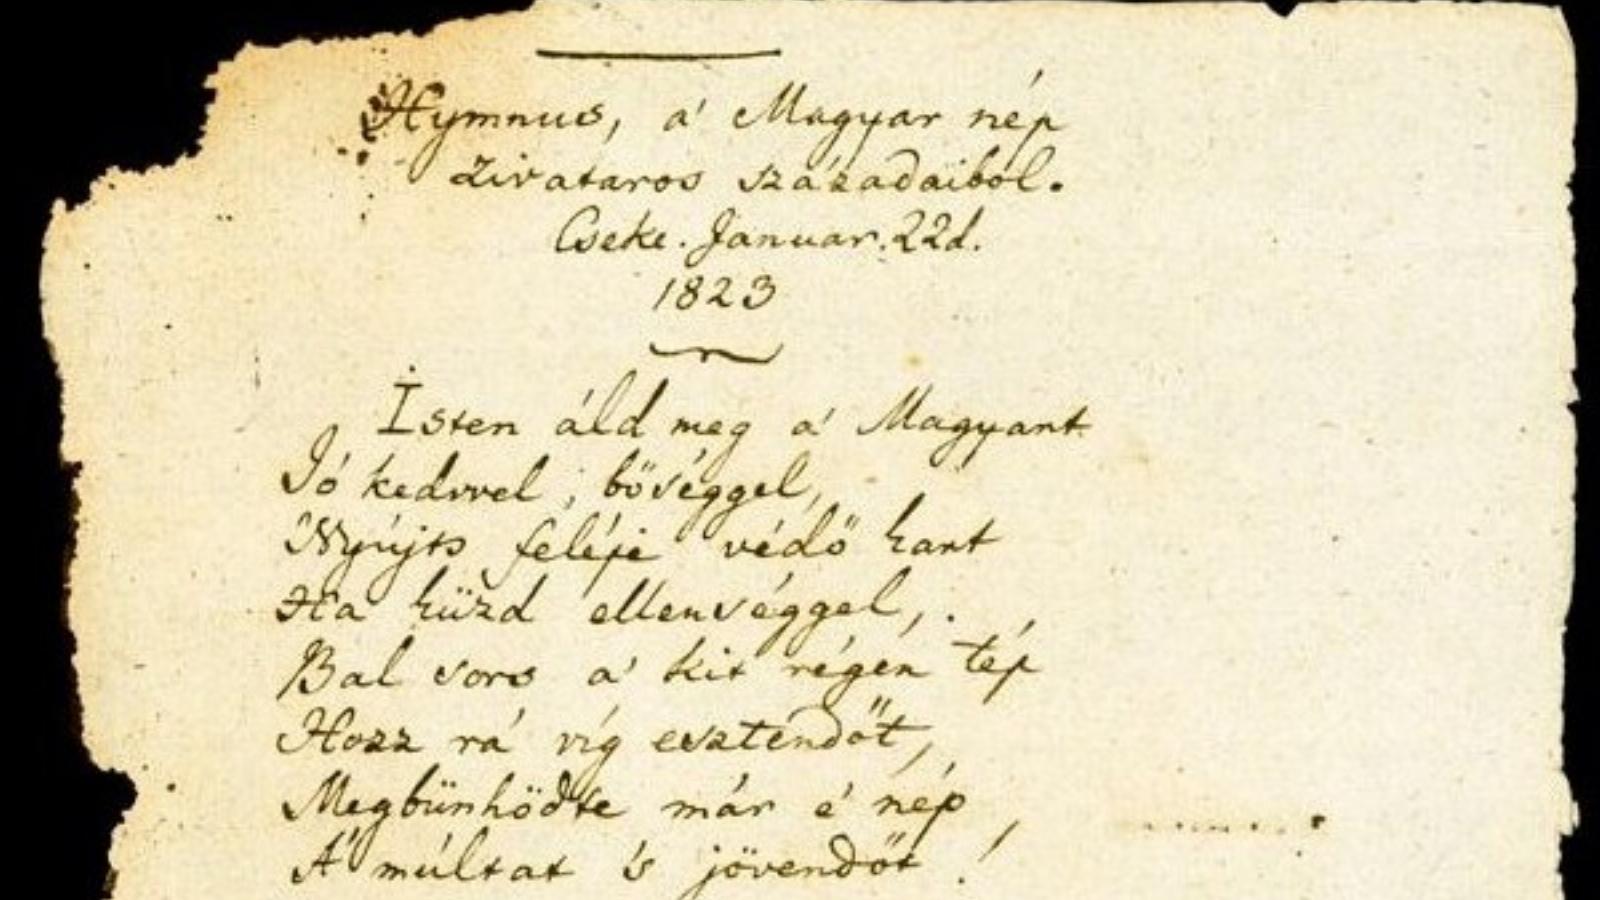 Hymnus, a' Magyar nép
zivataros századaiból.
Cseke. Januar. 22d.
1823
Isten áld meg a' Magyart
Jó kedvvel, bőséggel,
Nyújts feléje védő kart
Ha küzd ellenséggel,
Bal sors a' kit régen tép
Hozz rá víg esztendőt,
Megbünhödte már é' nép
A' múltat 's jövendőt!